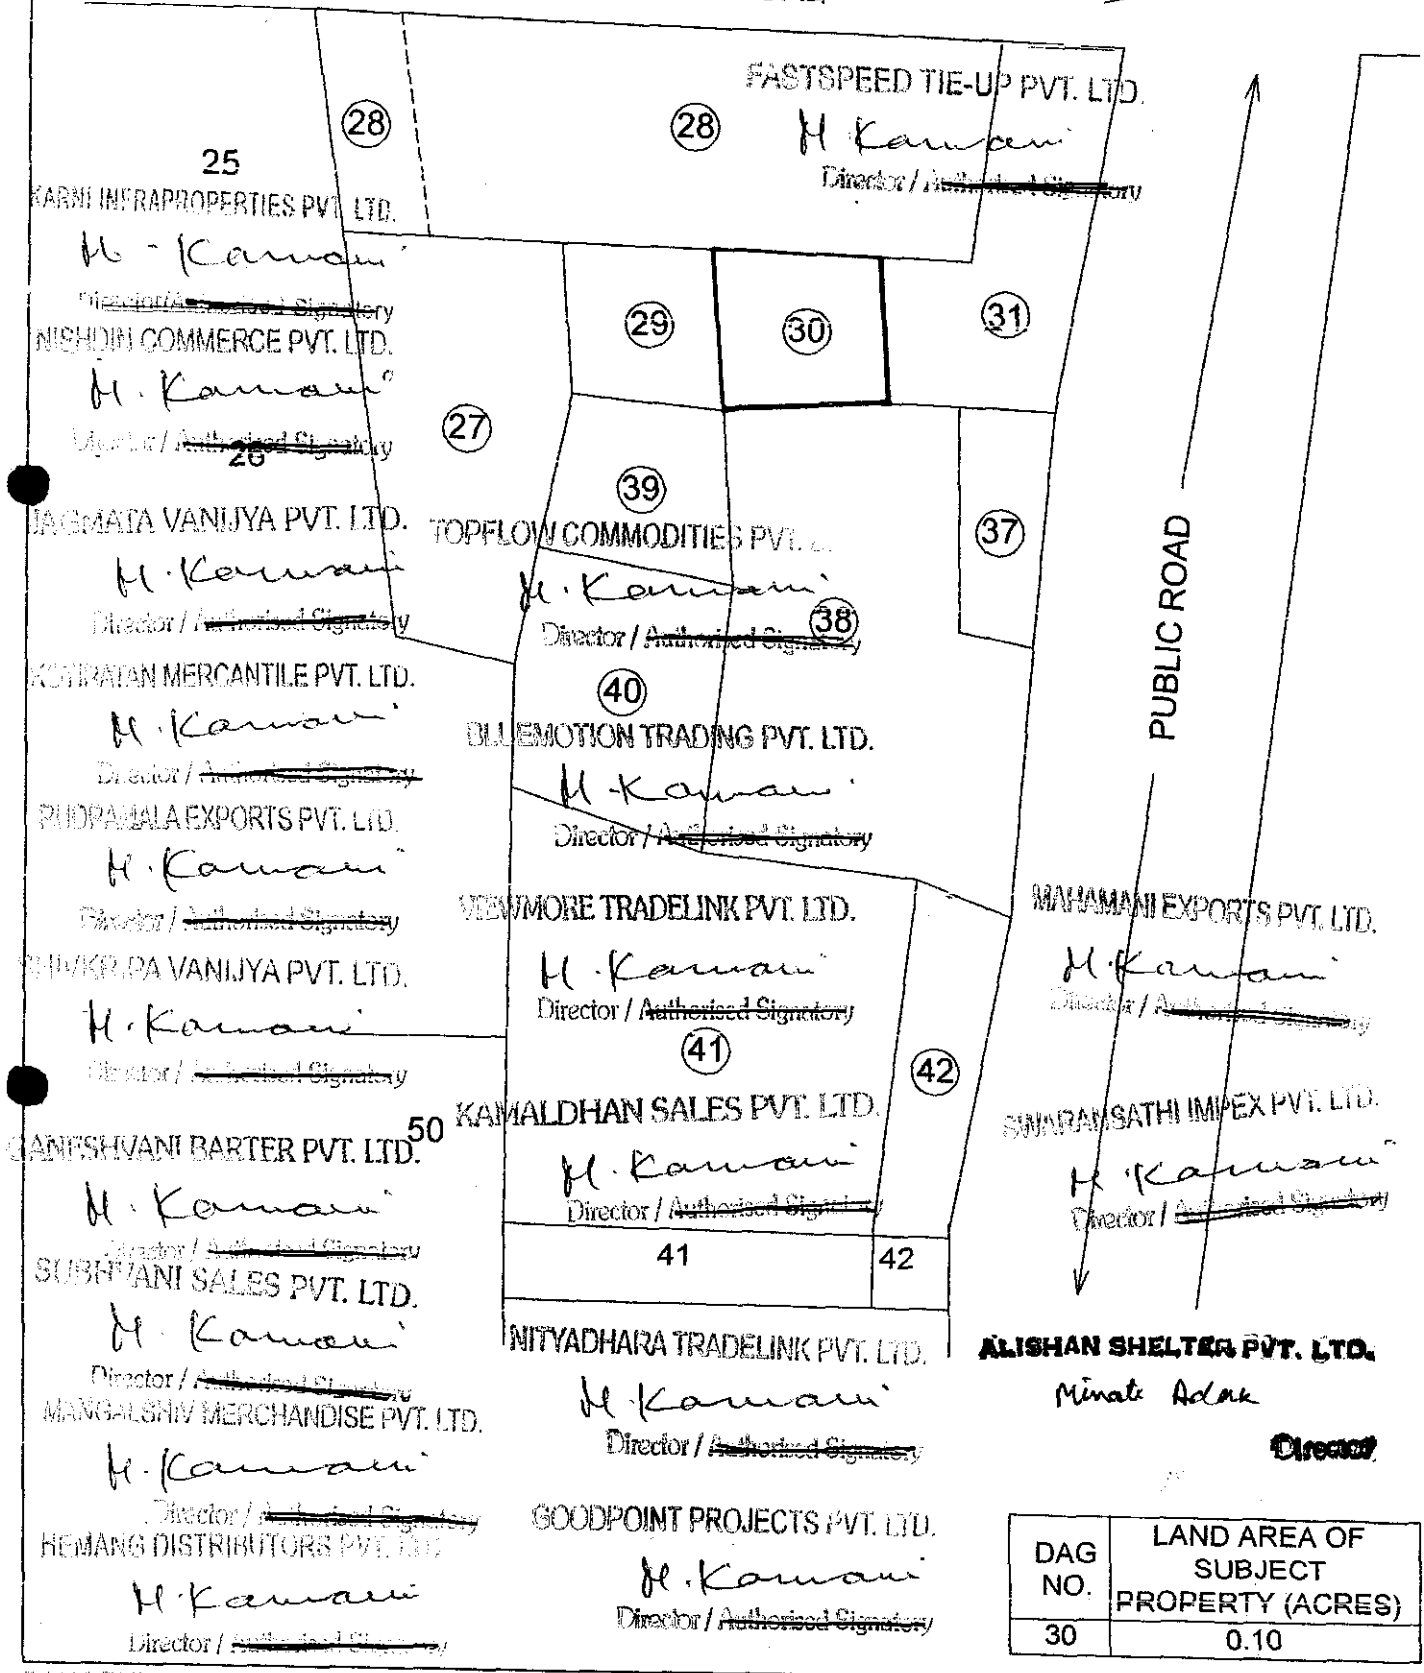 FASTSPEED TIE-UP PVT. LTD.
28
28
M Karnani
Director / Authorised Signatory
25
KARNI INFRAPROPERTIES PVT. LTD.
M - Karnani
Director / Authorised Signatory
29
30
31
NISHDIN COMMERCE PVT. LTD.
M. Karnani
Director / Authorised Signatory
26
27
39
JAGMATA VANIJYA PVT. LTD.
M. Karnani
Director / Authorised Signatory
TOPFLOW COMMODITIES PVT.
M. Karnani
Director / Authorised Signatory
37
38
PUBLIC ROAD
MERCANTILE PVT. LTD.
M. Karnani
Director / Authorised Signatory
40
BLUEMOTION TRADING PVT. LTD.
M. Karnani
Director / Authorised Signatory
EXPORTS PVT. LTD.
M. Karnani
Director / Authorised Signatory
VIEWMORE TRADELINK PVT. LTD.
M. Karnani
Director / Authorised Signatory
MAHAMANI EXPORTS PVT. LTD.
M. Karnani
Director / Authorised Signatory
SHIVKRIPA VANIJYA PVT. LTD.
M. Karnani
Director / Authorised Signatory
41
42
50
KAMALDHAN SALES PVT. LTD.
M. Karnani
Director / Authorised Signatory
SWARANSATHI IMPEX PVT. LTD.
M. Karnani
Director / Authorised Signatory
GANESHVANI BARTER PVT. LTD.
M. Karnani
Director / Authorised Signatory
41
42
SUBHVANI SALES PVT. LTD.
M. Karnani
Director / Authorised Signatory
NITYADHARA TRADELINK PVT. LTD.
M. Karnani
Director / Authorised Signatory
ALISHAN SHELTER PVT. LTD.
Minati Adak
Director
MANGALSHIV MERCHANDISE PVT. LTD.
M. Karnani
Director / Authorised Signatory
GOODPOINT PROJECTS PVT. LTD.
M. Karnani
Director / Authorised Signatory
HEMANG DISTRIBUTORS PVT. LTD.
M. Karnani
Director / Authorised Signatory
DAG NO.
LAND AREA OF
SUBJECT
PROPERTY (ACRES)
30
0.10